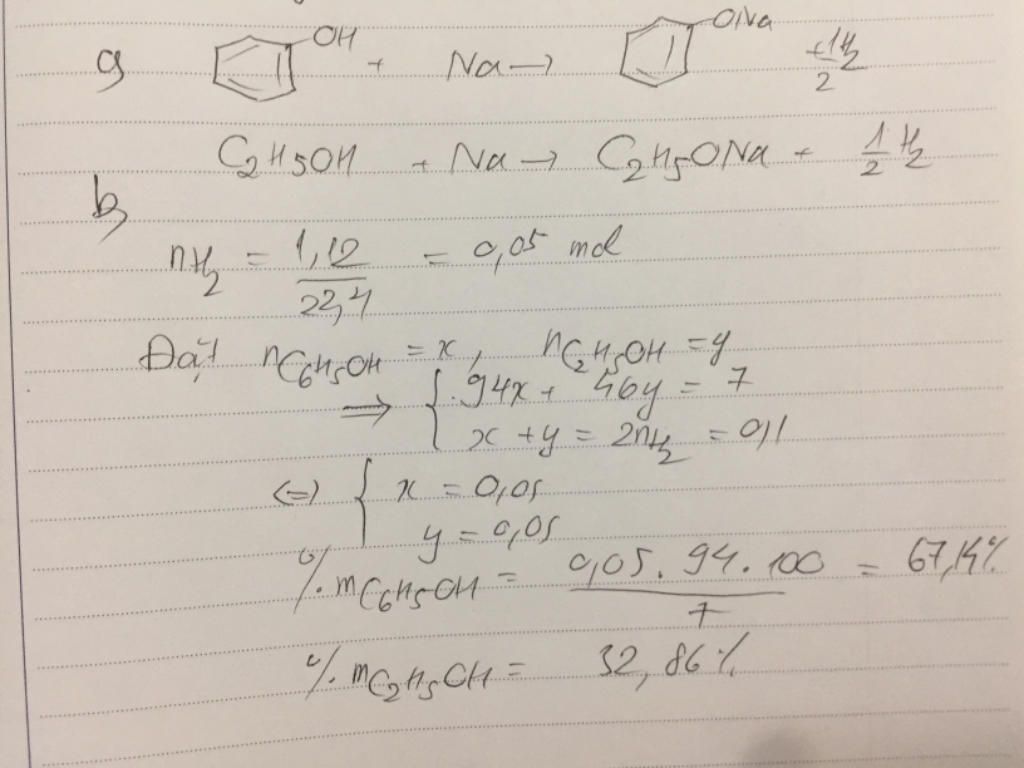 a) OH + Na → ONa + 1/2 H2
C2H5OH + Na → C2H5ONa + 1/2 H2
b)
nH2 = 1,12/22,4 = 0,05 mol
Đặt nC6H5OH = x, nC2H5OH = y
⇒ { 94x + 46y = 7
x + y = 2nH2 = 0,1
⇔ { x = 0,05
y = 0,05
% mC6H5OH = 0,05.94.100/7 = 67,14%
% mC2H5OH = 32,86%